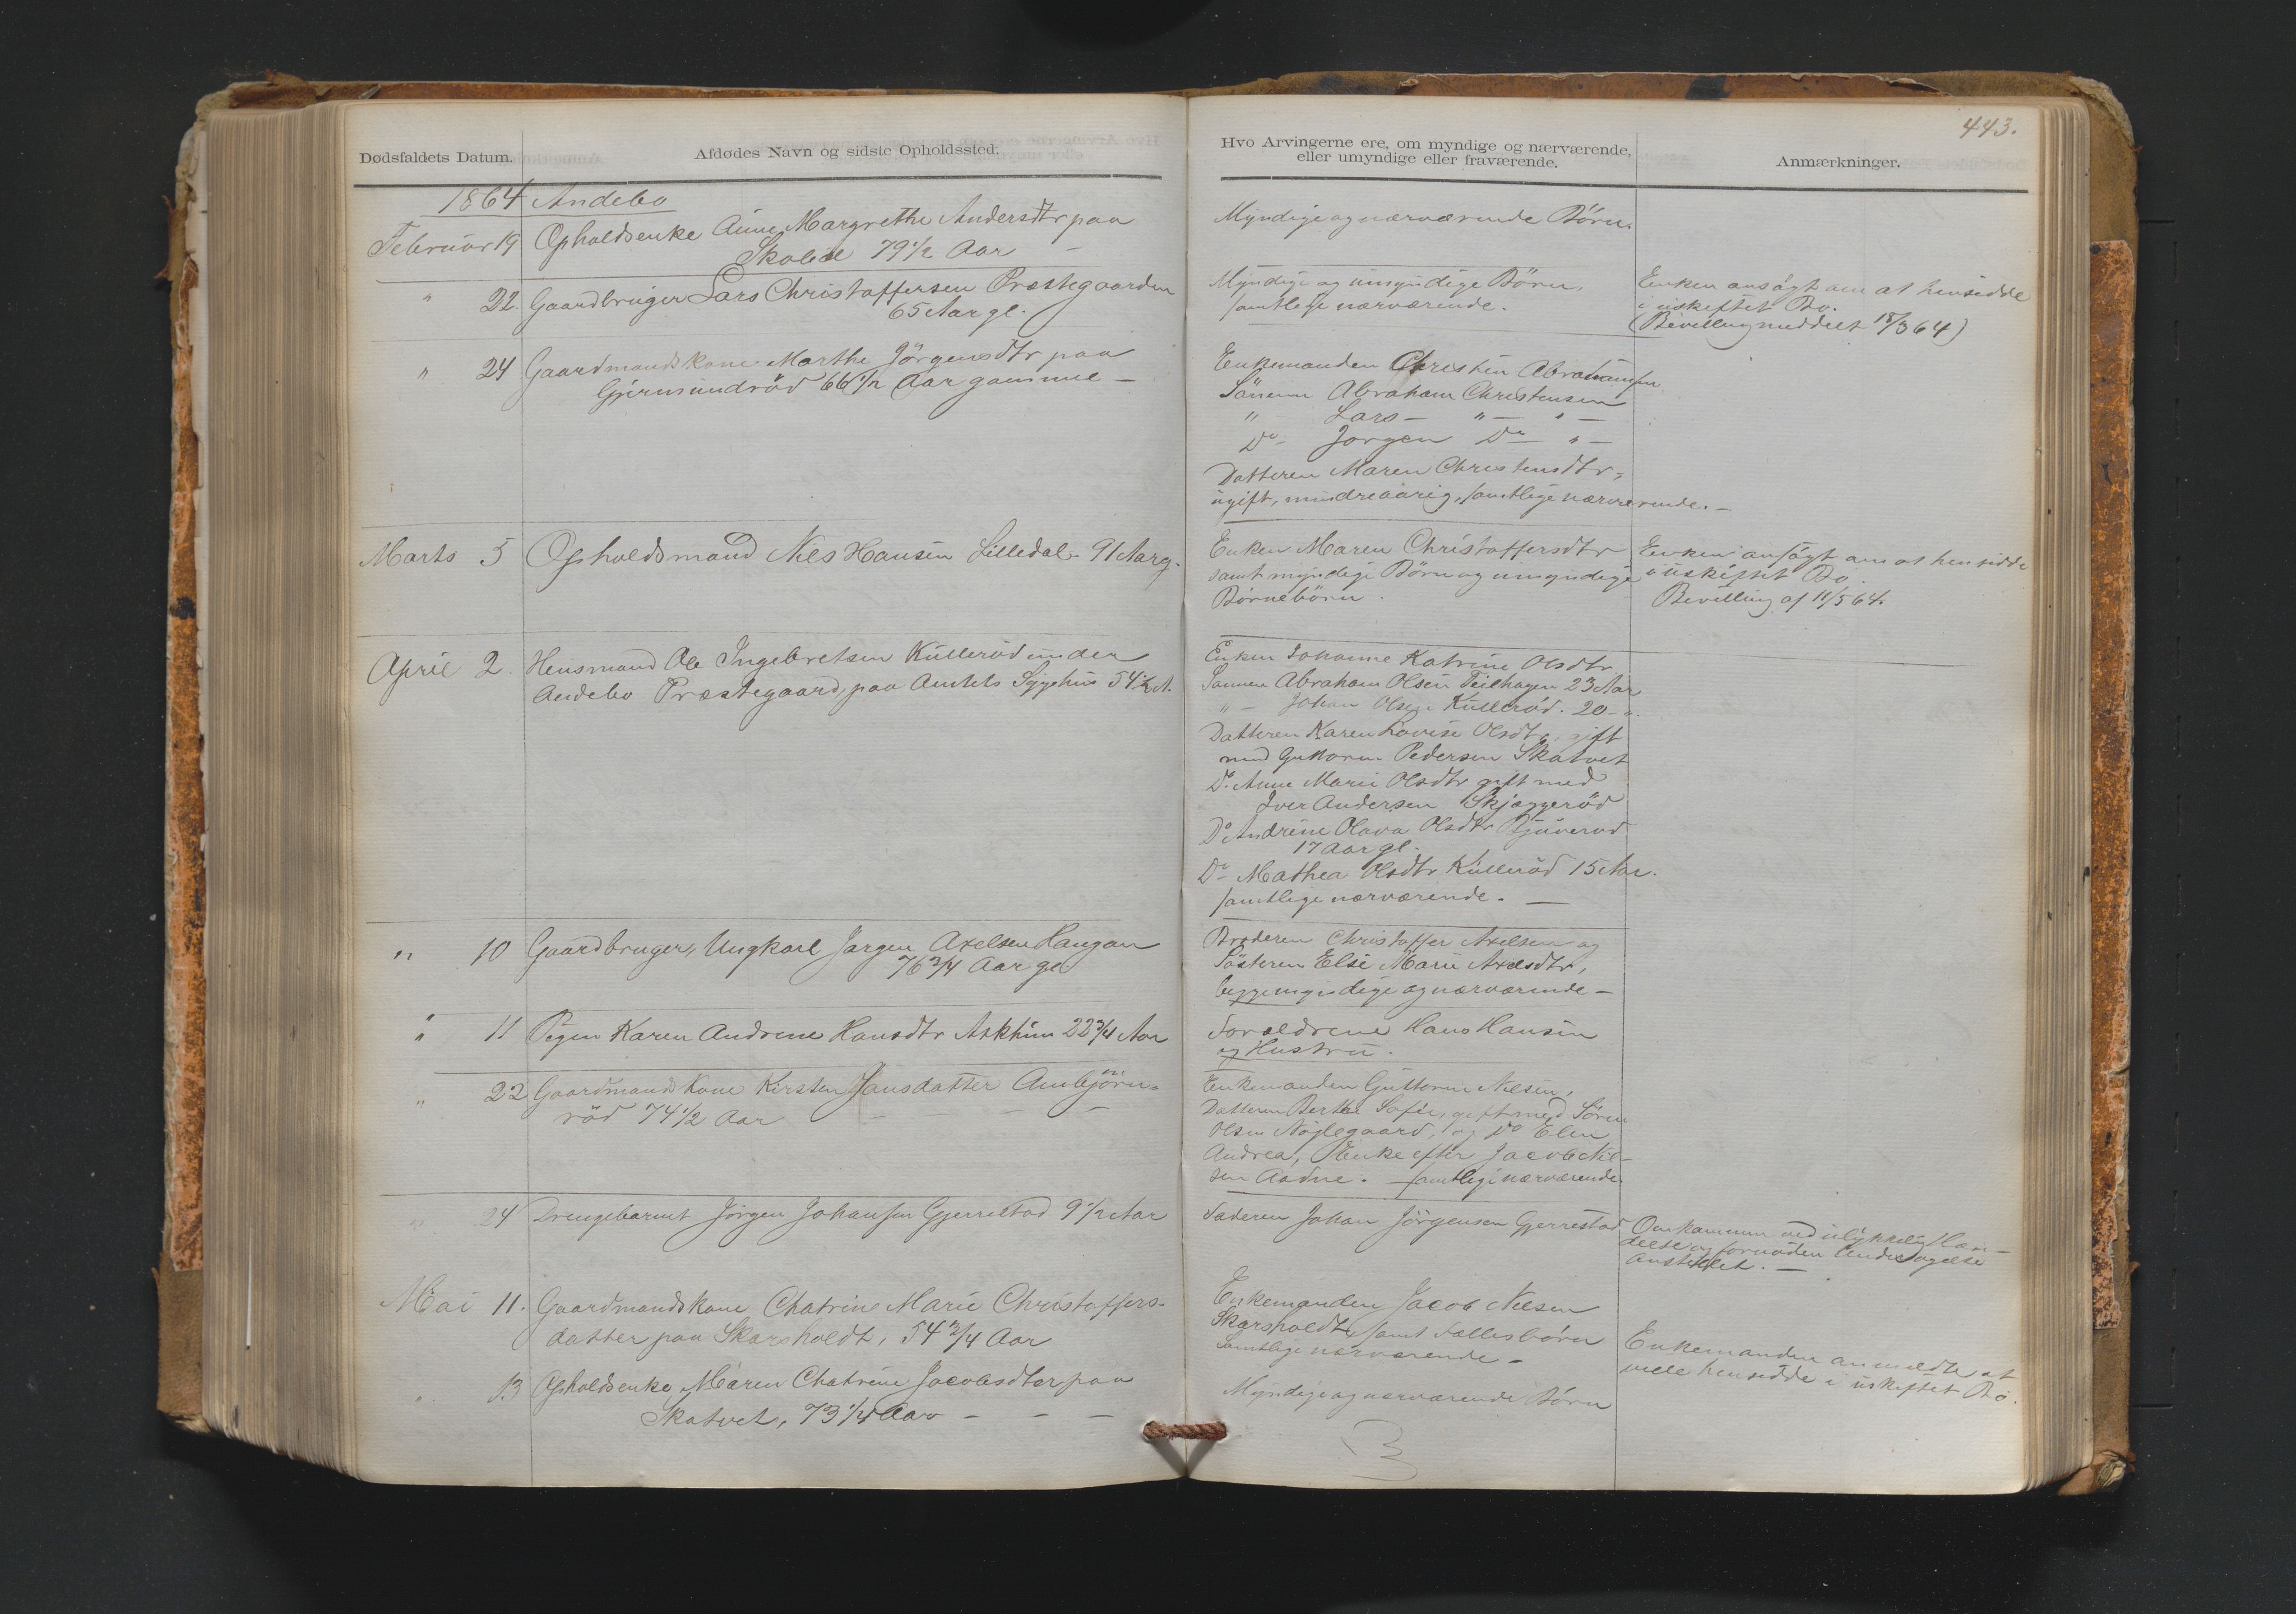 443.
Dødsfaldets Datum.
Afdødes Navn og sidste Opholdssted.
Hvo Arvingerne ere, om myndige og nærværende,
eller umyndige eller fraværende.
Anmærkninger.
1864 Andebo
Februar 19 Opholdsenke Anne Margrethe Andersdtr paa
79 1/2 Aar
Myndige og nærværende Børn.
" 22. Gaardbruger Lars Christoffersen Præstegaarden
65 Aar gl.
Myndige og umyndige Børn,
samtlige nærværende.
Enken ansøgt om at hensidde
i uskiftet Bo.
(Bevilling meddeelt 18/3 64)
" 24 Gaardmandskone Marthe Jörgensdtr paa
Gjermundröd 66 1/2 Aar gammel –
Enkemanden Christen Abrahamsen
Sönnen Abraham Christensen
" Lars – " – " –
Do – Jorgen Do " –
Datteren Maren Christensdtr,
ugift, mindreaarig, samtlige nærværende. –
Marts 5 Opholdsmand Niels Hansen Lilledal 91 Aar g.
Enken Maren Christoffersdtr
samt myndige Børn og umyndige
Börnebörn.
Enken ansögt om at hensidde
i uskiftet Bo.
Bevilling af 11/5 64.
April 2. Huusmand Ole Ingebretsen Kullerød under
Andebo Præstegaard, paa Amtets Sygehus 54 1/2 A.
Enken Johanne Katrine Olsdtr
Sønnen Abraham Olsen Teilhagen 23 Aar
" – Johan Olsen Kullerød. 20 – ".
Datteren Karen Lovise Olsdtr, gift
med Guttorm Pedersen Skatvet
Do Anne Marie Olsdtr gift med
Iver Andersen Skjæggeröd
Do Andrine Olava Olsdtr
17 Aar gl.
Do Mathea Olsdtr Kulleröd 15 Aar.
samtlige nærværende. –
" 10 Gaardbruger, Ungkarl Jørgen Axelsen Haugan
76 3/4 Aar gl
Broderen Christoffer Axelsen og
Søsteren Else Marie Axelsdtr,
begge myndige og nærværende –
" 11 Pigen Karen Andrine Hansdtr Askhim 22 3/4 Aar
Forældrene Hans Hansen
og Hustru.
" 22 Gaardmandskone Kirsten Hansdatter Ambjörn-
röd 74 1/2 Aar – – – –
Enkemanden Guttorm Nilsen,
Datteren Berthe Sofie, gift med Sören
Olsen Nøjlegaard, og Do Elen
Andrea, Enke efter Jacob Nil-
sen Aadne. – samtlige nærværende
" 24 Drengebarnet Jörgen Johansen Gjerrestad 9 1/2 Aar
Faderen Johan Jörgensen Gjerrestad
Omkommen ved ulykkelig Hæn-
delse og fornøden Undersøgelse
anstillet. –
Mai 11. Gaardmandskone Chatrine Marie Christoffers-
datter paa Skarsholdt, 54 3/4 Aar
Enkemanden Jacob Nilsen
Skarsholdt, samt Fællesbörn
Samtlige nærværende –
Enkemanden anmeldte at
ville hensidde i uskiftet Bo.
" 13 Opholdsenke Maren Chatrine Jacobsdter paa
Skatvet, 73 1/4 Aar – – –
Myndige og nærværende Børn